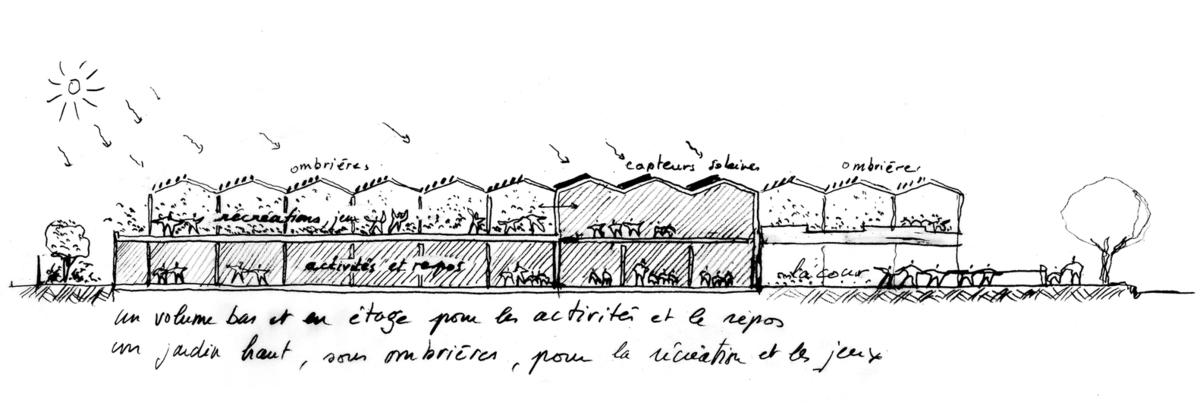 ombrières
capteurs solaires
ombrières
récréations, jeux
activités et repos
la cour
un volume bas et en étage pour les activités et le repos
un jardin haut, sous ombrières, pour la récréation et les jeux